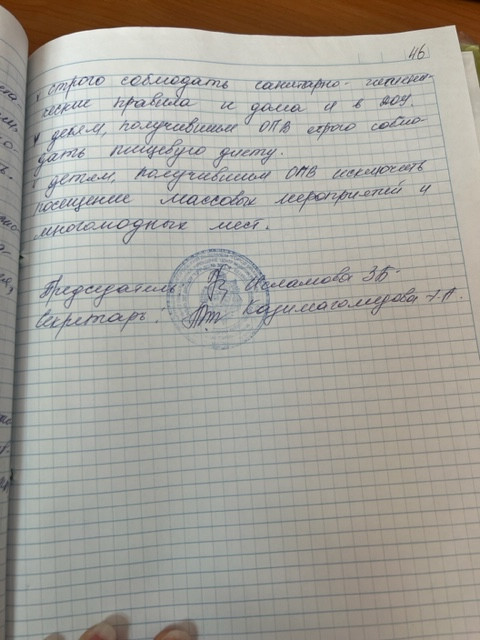 46
строго соблюдать санитарно- гигиени-
ческие правила и дома и в ДОУ.
детям, получившим ОПВ строго соблю-
дать пищевую диету.
детям, получившим ОПВ исключить
посещение массовых мероприятий и
многолюдных мест.
Председатель: Исламова З.Б.
Секретарь: Казимагомедова